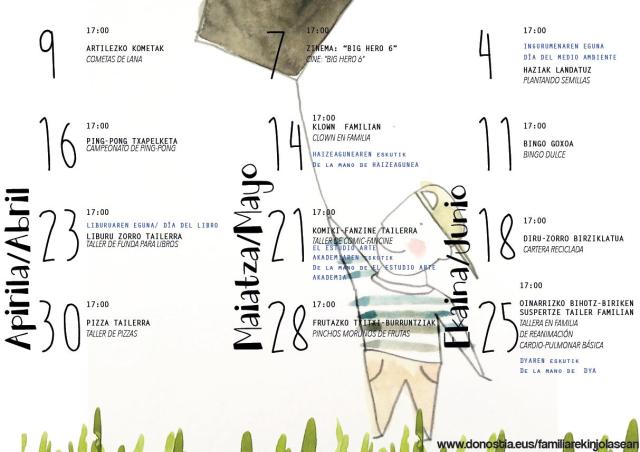 Apirila/Abril
9
17:00
ARTILEZKO KOMETAK
COMETAS DE LANA
16
17:00
PING-PONG TXAPELKETA
CAMPEONATO DE PING-PONG
23
17:00
LIBURUAREN EGUNA/ DÍA DEL LIBRO
LIBURU ZORRO TAILERRA
TALLER DE FUNDA PARA LIBROS
30
17:00
PIZZA TAILERRA
TALLER DE PIZZAS
Maiatza/Mayo
7
17:00
ZINEMA: "BIG HERO 6"
CINE: "BIG HERO 6"
14
17:00
KLOWN FAMILIAN
CLOWN EN FAMILIA
HAIZEAGUNEAREN ESKUTIK
DE LA MANO DE HAIZEAGUNEA
21
17:00
KOMIKI-FANZINE TAILERRA
TALLER DE COMIC-FANCINE
EL ESTUDIO ARTE
AKADEMIAREN ESKUTIK
DE LA MANO DE EL ESTUDIO ARTE
AKADEMIA
28
17:00
FRUTAZKO TXITXI-BURRUNTZIAK
PINCHOS MORUNOS DE FRUTAS
Ekaina/Junio
4
17:00
INGURUMENAREN EGUNA
DÍA DEL MEDIO AMBIENTE
HAZIAK LANDATUZ
PLANTANDO SEMILLAS
11
17:00
BINGO GOXOA
BINGO DULCE
18
17:00
DIRU-ZORRO BIRZIKLATUA
CARTERA RECICLADA
25
17:00
OINARRIZKO BIHOTZ-BIRIKEN
SUSPERTZE TAILER FAMILIAN
TALLERA EN FAMILIA
DE REANIMACIÓN
CARDIO-PULMONAR BÁSICA
DYAREN ESKUTIK
DE LA MANO DE DYA
www.donostia.eus/familiarekinjolasean